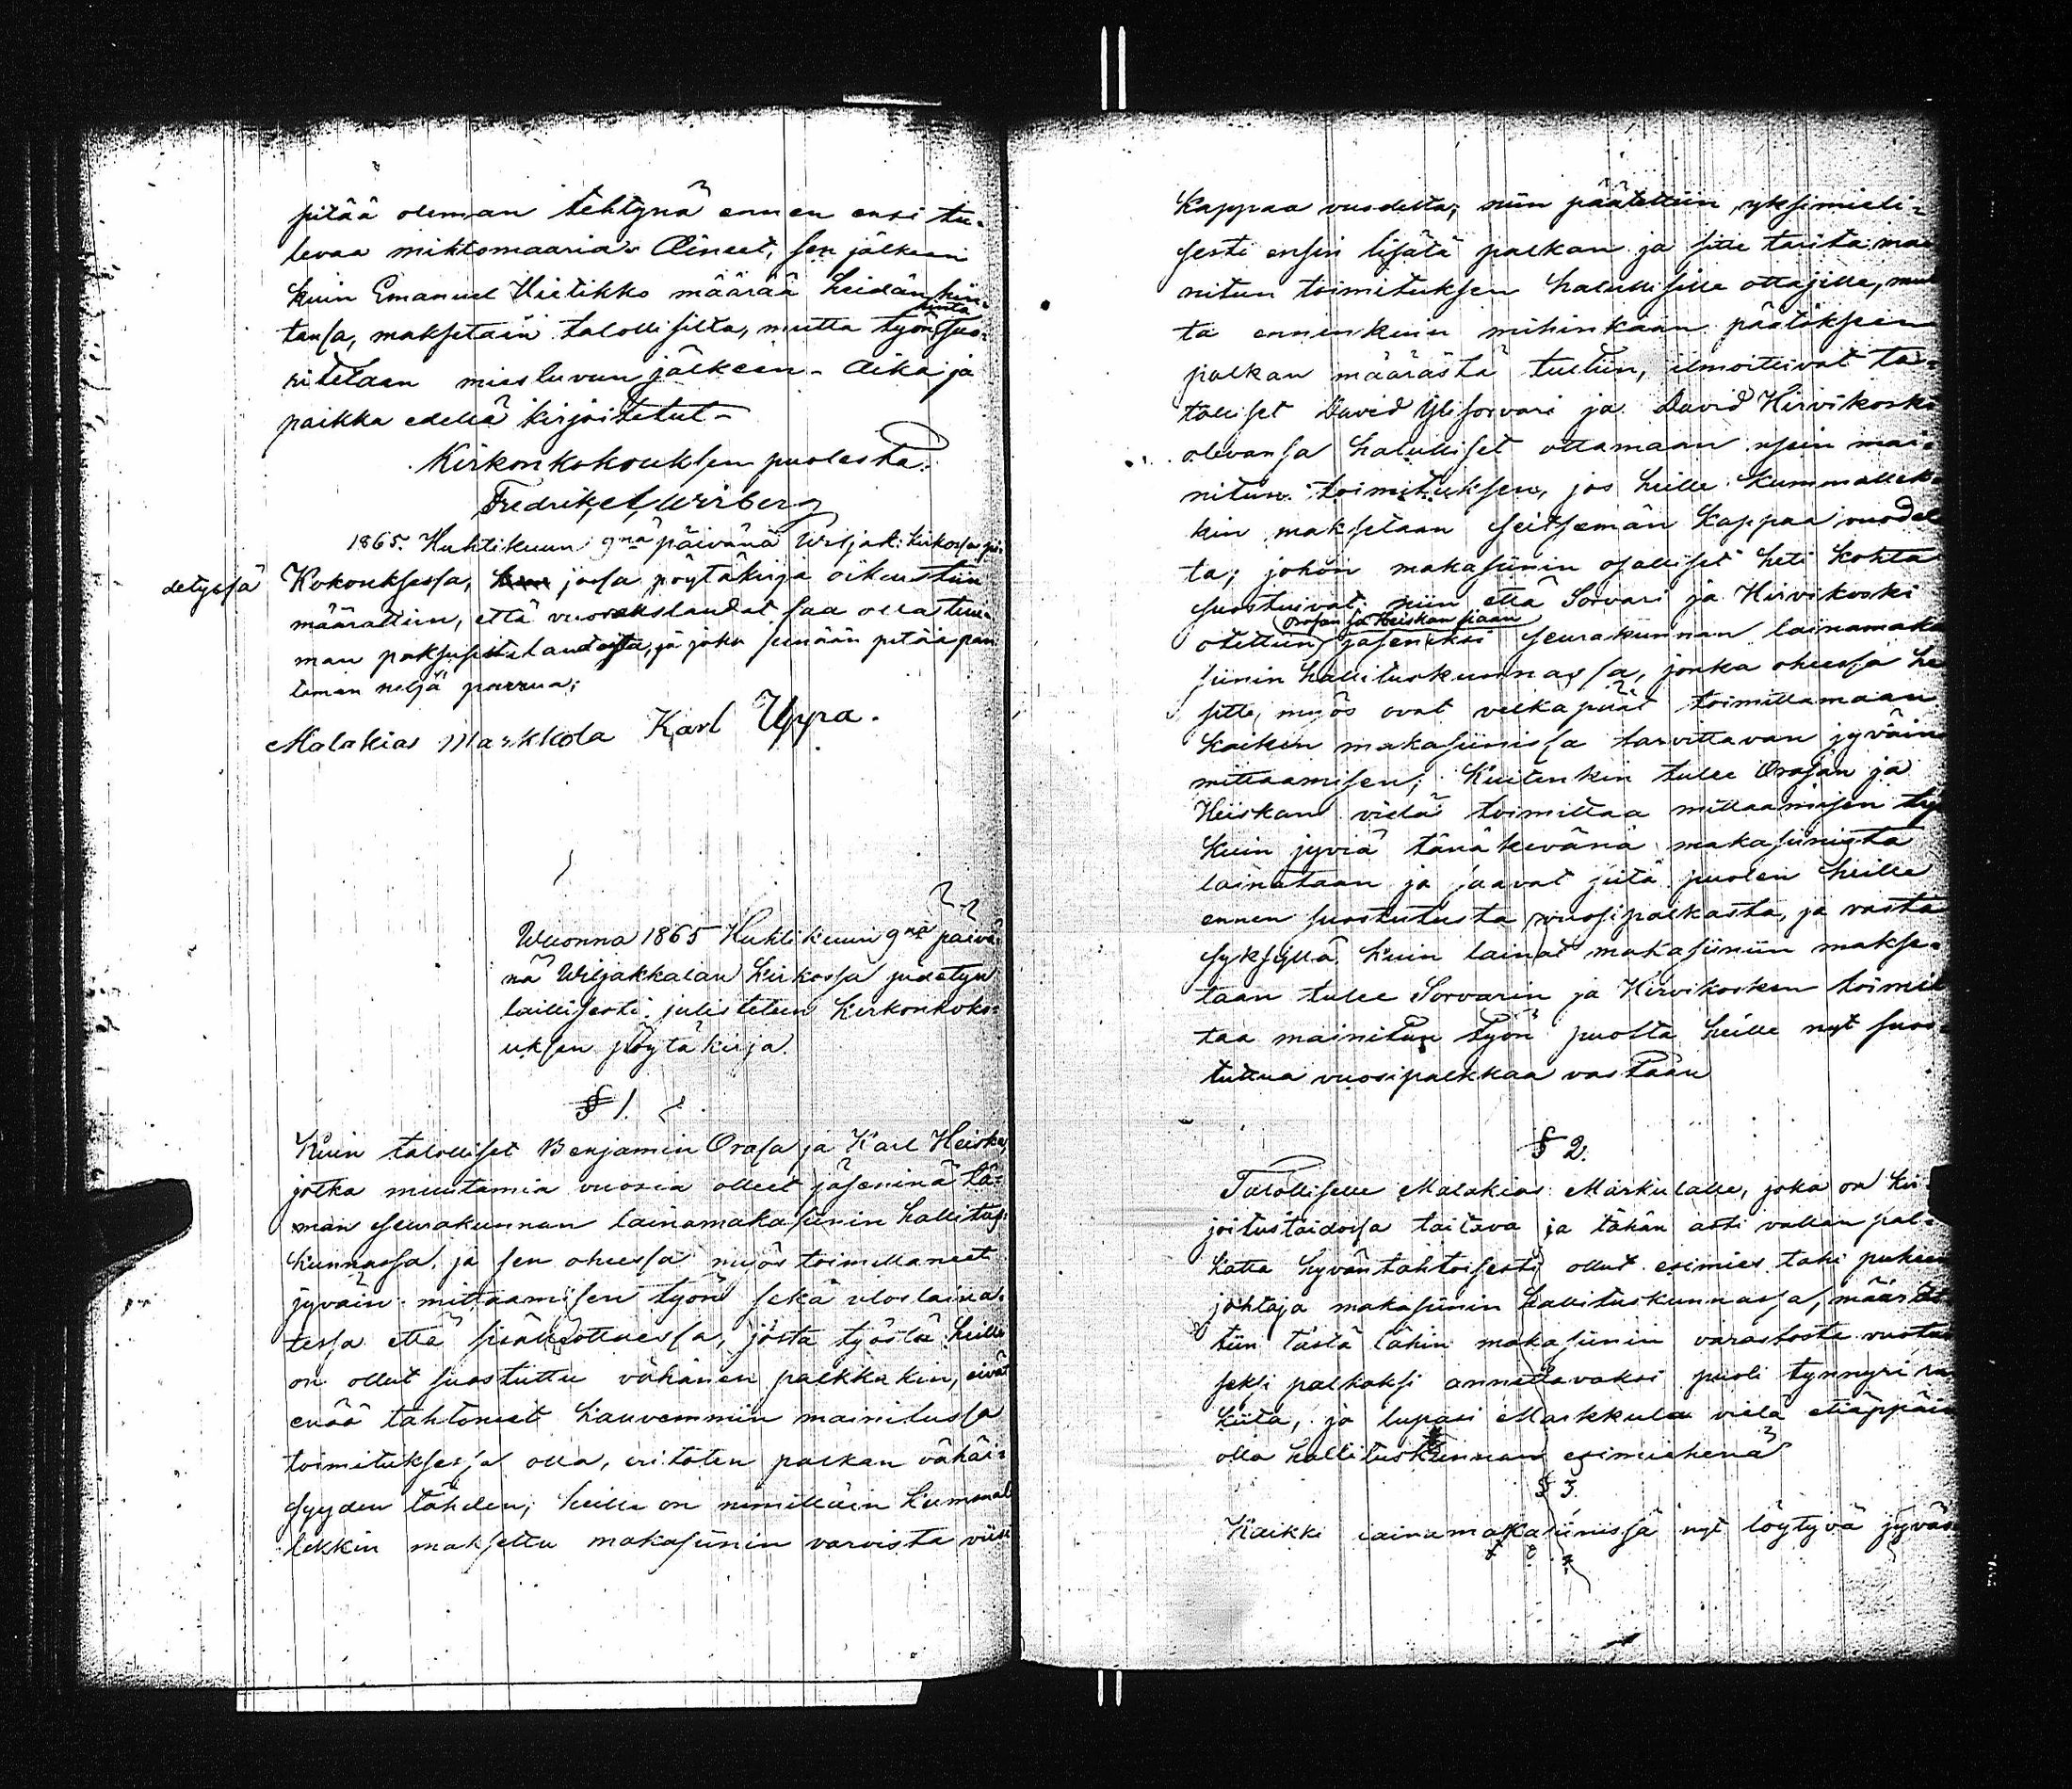 pitää oleman tehtynä ennen ensi tu-
levaa mikkomaaria. Aineet, sen jälkeen
kuin Emanuel Hietikko määrää heidän hin-
tansa, maksetain talollisilta, mutta työn hinta suo-
ritetaan miesluvun jälkeen. Aika ja
paikka edellä kirjoitetut.
Kirkonkokouksen puolesta.
Fredrik
1865. Huhtikuun 9nä päivänä Wiljak: kirkossa pi-
detyssä Kokouksessa, jossa pöytäkirja oikaistiin
määrättiin, että vuoraus laudat saa olla tuu-
man paksuisista laudoista, ja joka seinään pitää pan-
taman neljä parrua;
Malakias Markkola Karl Uppa.
Wuonna 1865 Huhtikuun 9nä päivä-
nä Wiljakkalan kirkossa pidetyn
laillisesti julistetun kirkonkoko-
uksen pöytäkirja.
§ 1.
Kuin talolliset Benjamin Orasa ja Karl Heiska,
jotka muutamia vuosia olleet jäseninä tä-
män seurakunnan lainamakasiinin hallitus-
kunnassa, ja sen oheessa myös toimittaneet
jyväin mittaamisen työn sekä ulos laina-
tessa että sisään ottaessa, josta työstä heille
on ollut suostuttu vähäinen palkkakin, eivät
enää tahtoneet kauvemmin mainitussa
toimituksessa olla, eritoten palkan vähäi-
syyden tähden; heille on nimittäin kummal-
lekkin maksettu makasiinin varoista viisi
Kappaa vuodelta; niin päätettiin yksimieli-
sesti ensin lisätä palkan ja sitte tarita mai-
nitun toimituksen halullisille ottajille, mut-
ta ennenkuin mihinkään päätöksen
palkan määrästä tultiin, ilmoittivat ta-
lolliset David Ylisorvari ja David Hirvikoski
olevansa halulliset ottamaan usein mai-
nitun toimituksen, jos heille kummallek-
kin maksetaan seitsemän kappaa vuodel-
ta; johon makasiinin osalliset heti kohta
suostuivat, niin että Sorvari ja Hirvikoski
otettiin Orasan ja Heiskan siaan jäseneksi seurakunnan lainamaka-
siinin hallituskunnassa, jonka oheessa he
sitte myös ovat velkapäät toimittamaan
kaiken makasiinissa tarvittavan jyväin
mittaamisen; Kuitenkin tulee Orasan ja
Heiskan vielä toimittaa mittaamisen työ
kuin jyviä tänä keväänä makasiinista
lainataan ja saavat siitä puolen heille
ennen suostutusta vuosipalkasta, ja vasta
syksyllä kuin lainat makasiiniin makse-
taan tulee Sorvarin ja Hirvikosken toimit-
taa mainitun työn puolta heille nyt suos-
tuttua vuosipalkkaa vastaan
§ 2.
Talolliselle Malakias Markulalle, joka on kir-
joitustaidossa taitava ja tähän asti vallan pal-
katta hyväntahtoisesti ollut esimies tahi puheen
johtaja makasiinin hallituskunnassa, määrät-
tiin tästä lähin makasiinin varastosta vuotui-
seksi palkaksi annettavaksi puoli tynnyriä ru-
kiita, ja lupasi Markkula vielä etiäppäin
olla hallituskunnan esimiehenä
§ 3.
Kaikki lainamakasiinissa nyt löytyvä jyväs